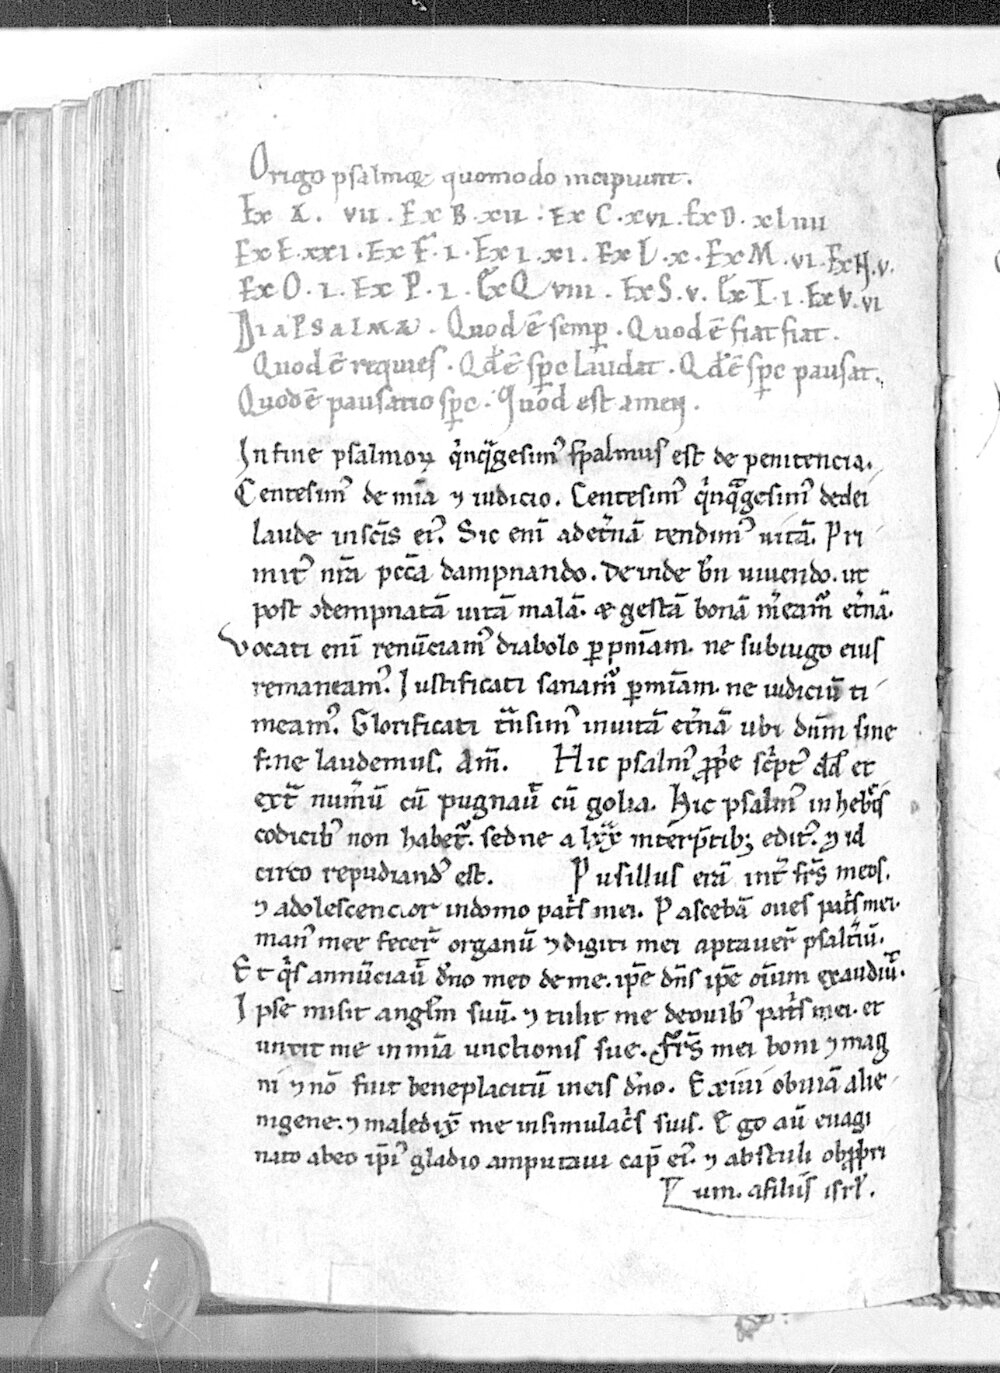 Origo psalmoꝝ quomodo incipiunt.
Ex A. vii. Ex B. xii. Ex C. xvi. Ex D. xliiii
Ex E. xxi. Ex F. i. Ex I. xi. Ex L. x. Ex M. vi. Ex N. v.
Ex O. i. Ex P. i. Ex Q viii. Ex S. v. Ex T. i. Ex V. vi
Diapsalma. Quod ē semꝑ. Quod ē fiat fiat.
Quod ē requies. Qđ ē spc laudat. Qđ ē spc pausat.
Quod ē pausatio spc. Quod est amen.
In fine psalmoꝝ q̇nq̄gesimꝰ psalmus est de penitencia.
Centesimꝰ de mīa ⁊ iudicio. Centesimꝰ q̇nq̄gesimꝰ de dei
laude in sc̄is eiꝰ. Sic eni᷒ ad et̄nā tendimꝰ uitā. Pri
mitꝰ nr̄a pcc̄a dampnando. deinde bn̄ uiuendo. ut
post ↄdempnatā uitā malā. ⁊ gestā bonā m̄eamꝰ et̄nā.
Vocati enī renūciamꝰ diabolo ꝑ pn̄iam. ne sub iugo eius
remaneamꝰ. Iustificati sanamꝰ ꝑ mīam. ne iudiciū ti
meamꝰ. Glorificati t̄nsimꝰ in uitā et̄nā ubi dn̄m sine
fine laudemus. Am̄. Hic psalmꝰ ꝓpe sc̄ptꝰ dd̄ et
ext̄ num̄ū cū pugnaū cū golia. Hic psalmꝰ in hebr̄is
codicibꝰ non habet᷑. sed ne a lxx int̄ꝑtibꝫ editꝰ. ⁊ id
circo repudiandꝰ est. Pusillus erā int̄ fr̄s meos.
⁊ adolescencior in domo pat̄s mei. Pascebā oues pat̄s mei.
manꝰ mee fecer̄ organū ⁊ digiti mei aptauer̄ psalt̄iū.
Et q̇s annūciaū dn̄o meo de me. ip̄e dn̄s ip̄e oīum exaudiū.
Ipse misit angl̄m suū. ⁊ tulit me de ouibꝰ pat̄s mei. et
unxit me in mīa unctionis sue. Fr̄s mei boni ⁊ mag
ni ⁊ nō fuit beneplacitū in eis dn̄o. Exiui obuiā alie
nigene. ⁊ maledix̄ me in simulac̄s suis. Ego aū euagi
nato ab eo ip̄iꝰ gladio amputaui cap̄ eiꝰ. ⁊ abstuli obꝓpri
um. a filiis isrl̄.